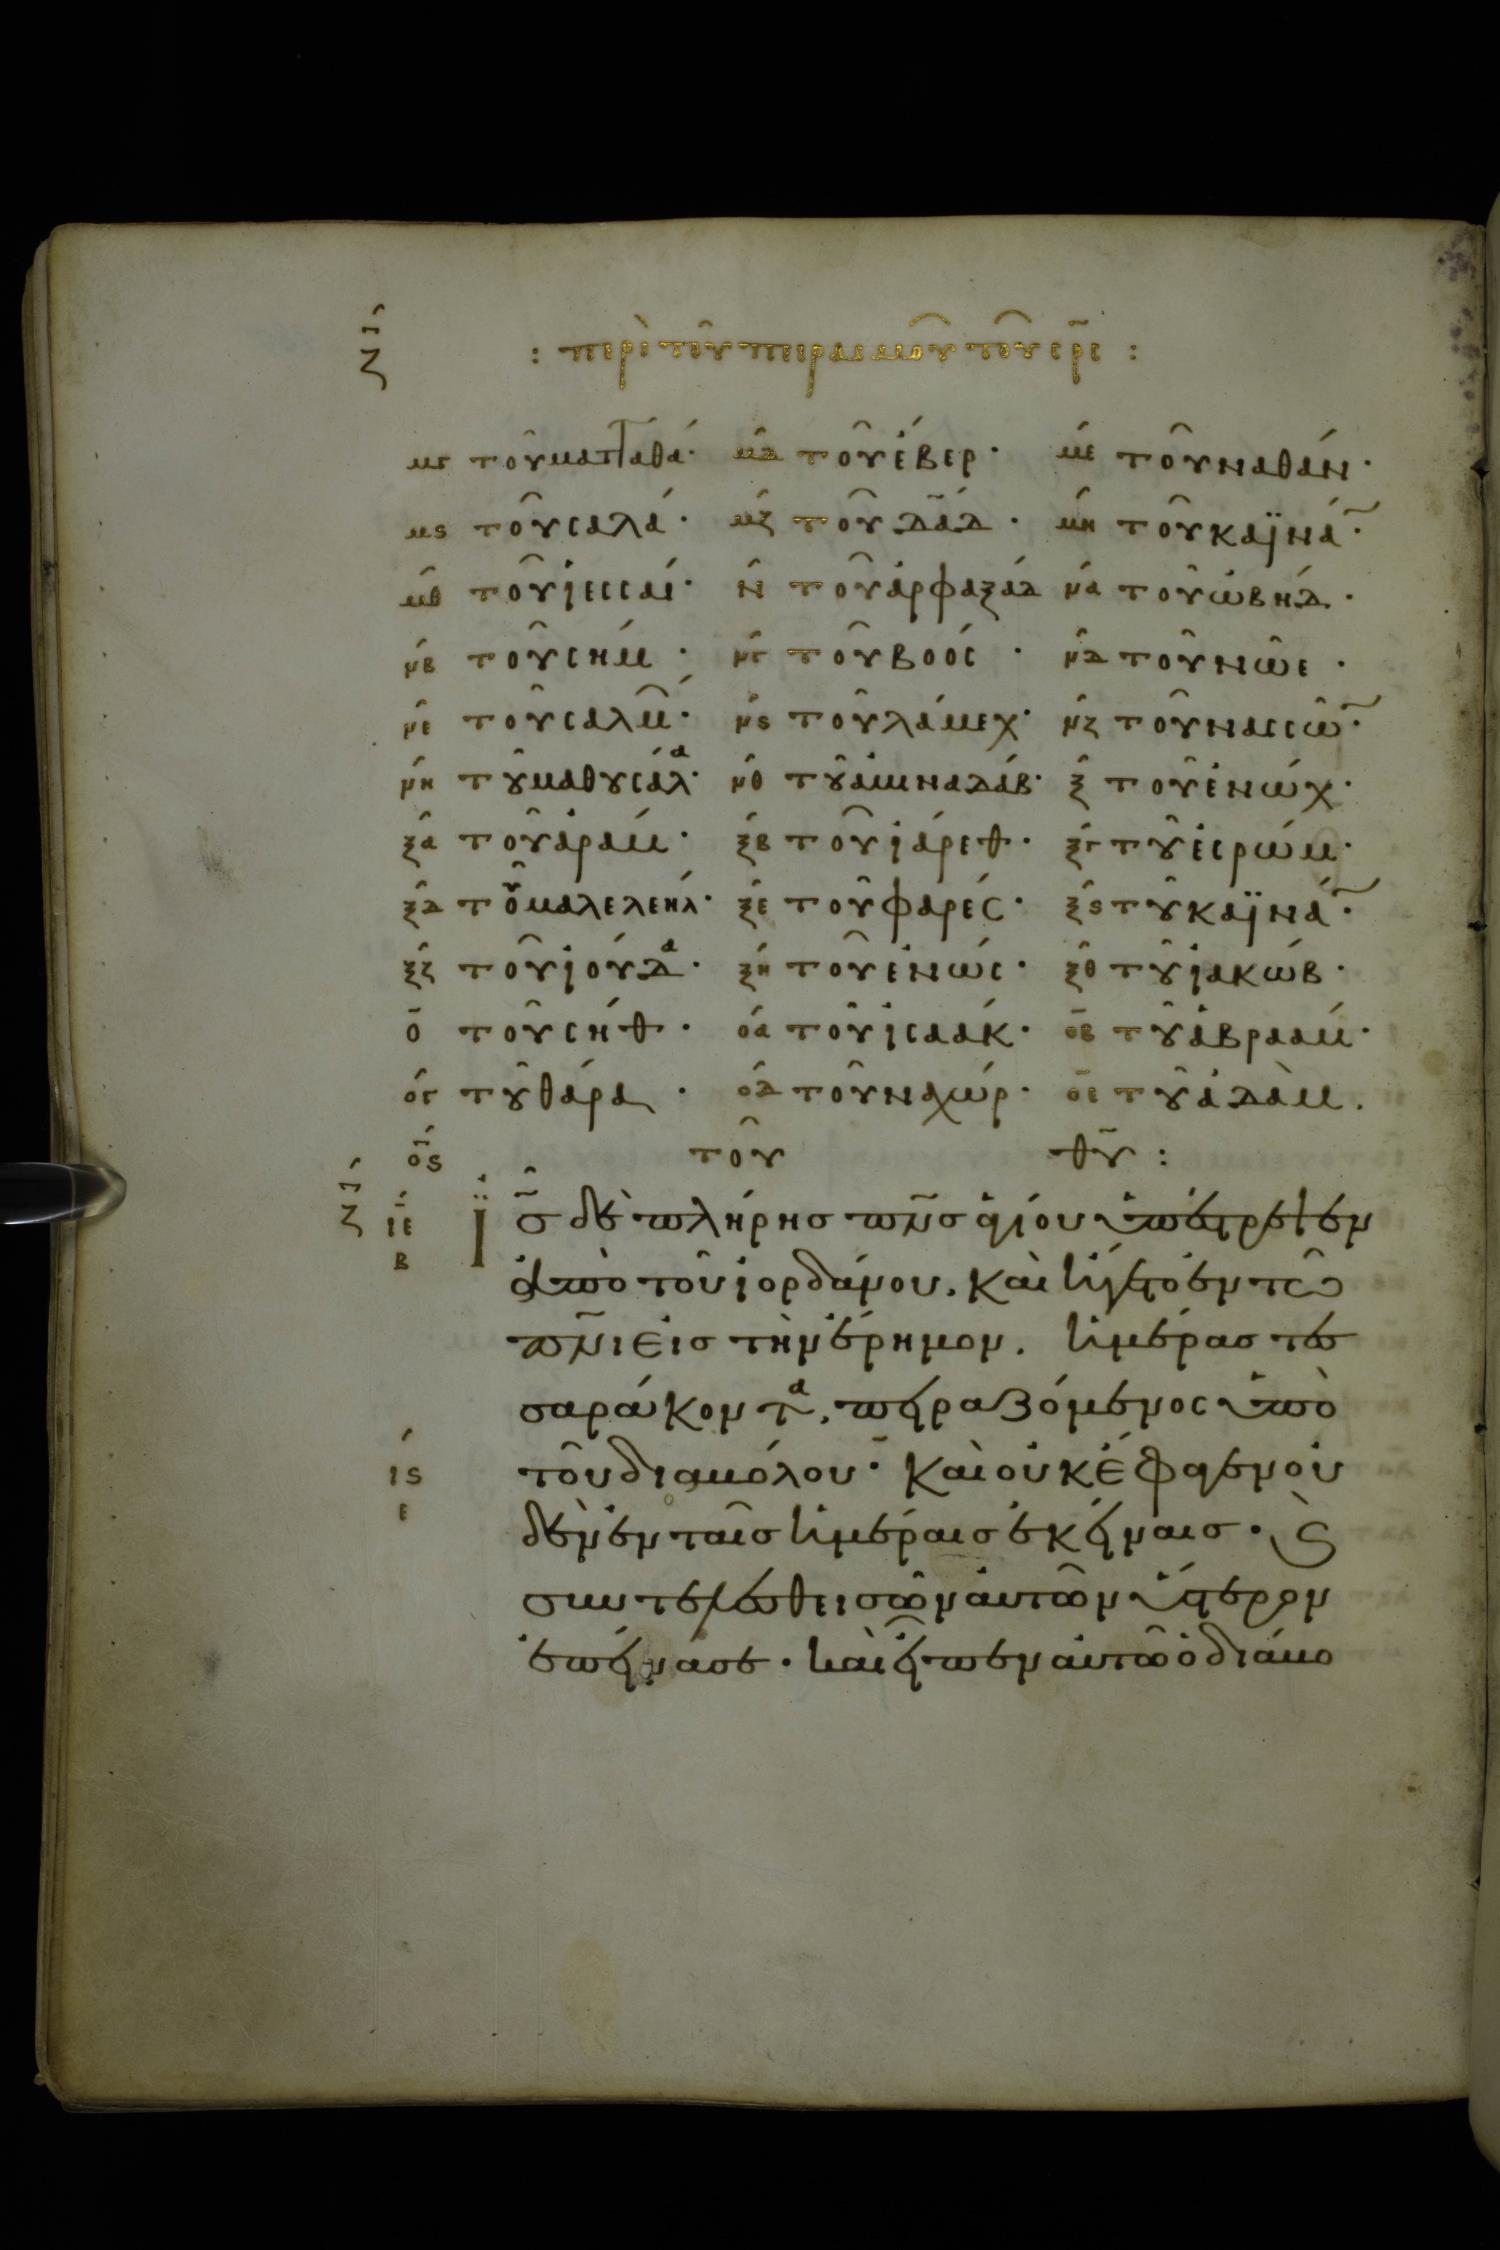 ζ̑ : περὶ τοῦ πειρασμοῦ τοῦ σρ̅ς :
μγ τοῦ ματταθά · μδ τοῦ ἑβερ · με τοῦ ναθάν ·
μς τοῦ σαλά · μζ τοῦ δα̅δ · μη τοῦ καϊνά̅ ·
μθ τοῦ ἰεσσαί · ν τοῦ ἀρφαξάδ να τοῦ ὠβήδ ·
νβ τοῦ σήμ · νγ τοῦ βοός · νδ τοῦ νῶε ·
νε τοῦ σαλμ · νς τοῦ λάμεχ · νζ τοῦ ναασσω̅ ·
νη τοῦ μαθουσάλα · νθ τοῦ ἀμιναδάβ · ξ τοῦ ἐνώχ ·
ξα τοῦ ἀράμ · ξβ τοῦ ἰάρεθ · ξγ τοῦ ἐσρώμ ·
ξδ τοῦ μαλελεήλ · ξε τοῦ φαρές · ξς τοῦ καϊνά̅ ·
ξζ τοῦ ἰούδα · ξη τοῦ ἐνώς · ξθ τοῦ ἰακώβ ·
ο τοῦ σήθ · οα τοῦ ἰσαάκ · οβ τοῦ ἀβραάμ ·
ογ τοῦ θάρα · οδ τοῦ ναχώρ · οε τοῦ ἀδὰμ .
ος τοῦ θυ̅ :
ζ ιε Ϊσ̅ δὲ πλήρησ πν̅σ ἁγίου ὑπέστρεψεν
β ἀπὸ τοῦ ἰορδάνου . καὶ ἤγετο ἐν τῶ
πν̅ι εἰσ τὴν ἔρημον . ἡμέρασ τεσ
σαράκοντα , πειραζόμενος ὑπὸ
ις τοῦ διαβόλου · καὶ οὐκ ἔφαγεν οὐ
ε δὲν ἐν ταῖσ ἡμέραισ ἐκείναισ · ϗ
συντελεσθεισῶν αὐτῶν ὕστερον
ἐπείνασε · καὶ εἶπεν αὐτῶ ὁ διάβο